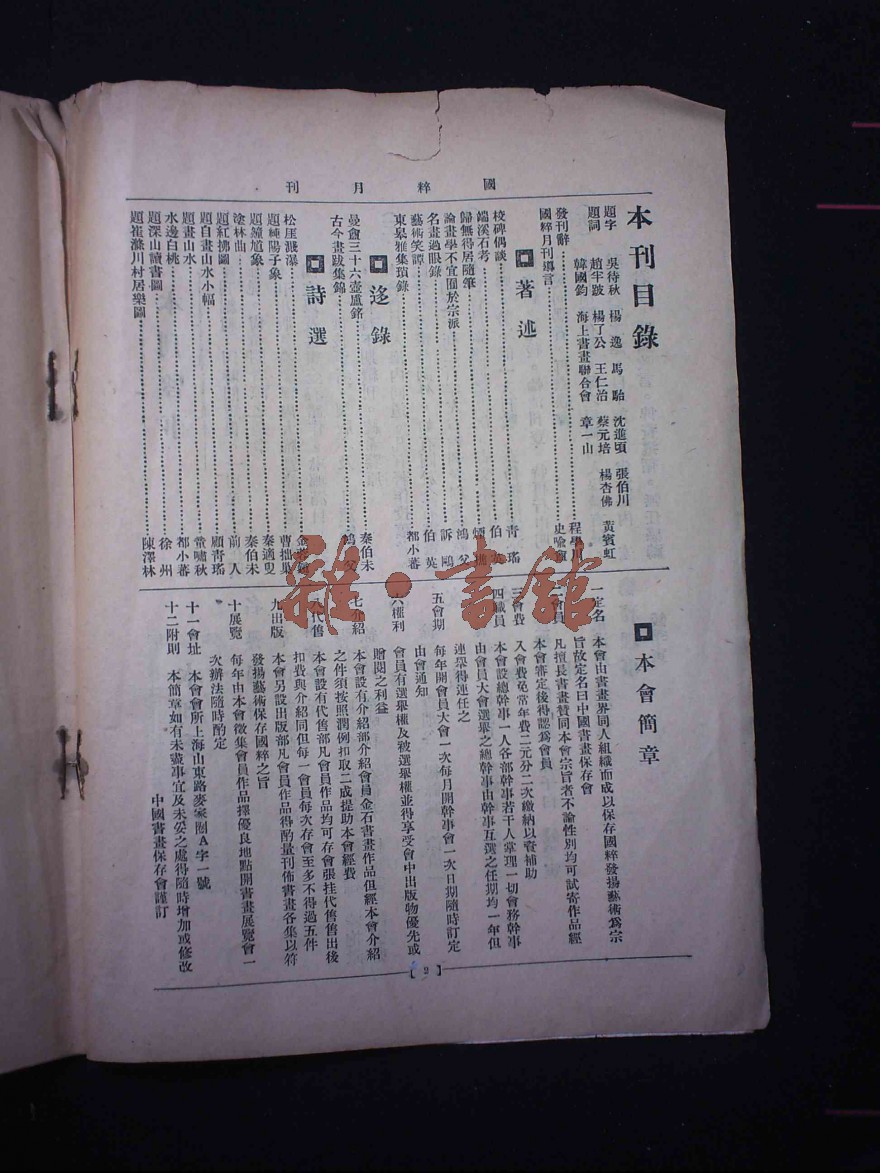 國粹月刊
本刊目錄
題字 吳待秋 楊逸 馬駘 沈進頃 張伯川 黃賓虹
題詞 趙半跛 楊了公 王仁治 蔡元培 楊杏佛
韓國鈞 海上書畫聯合會 章一山
發刊辭 程學川
國粹月刊導言 史喩盦
著述
校碑偶談 青瑤
端溪石考 伯英
歸無得居隨筆 煙樵
論畫學不宜囿於宗派 鴻父
名畫過眼錄 訴鷗
藝術笑譚 伯英
東皋雅集瑣錄 都小蕃
迻錄
曼盦三十六壺盧銘 秦伯未
古今畫跋集錦 鴻父
詩選
松崖濺瀑
題純陽子象 曹拙巢
題鐘馗象 秦適叟
塗林曲 秦伯未
題紅拂圖 前人
題自畫山水小幅 顧青瑤
題畫山水 常嘯秋
水邊白桃 都小蕃
題深山讀書圖 徐州
題崔滌川村居樂圖 陳澤林
本會簡章
一定名 本會由書畫界同人組織而成以保存國粹發揚藝術爲宗
旨故定名曰中國書畫保存會
二會員 凡擅長書畫贊同本會宗旨者不論性別均可試寄作品經
本會審定後得認爲會員
三會費 入會費免常年費二元分二次繳納以資補助
四職員 本會設總幹事一人各部幹事若干人掌理一切會務幹事
由會員大會選舉之總幹事由幹事互選之任期均一年但
連舉得連任之
五會期 每年開會員大會一次每月開幹事會一次日期隨時訂定
由會通知
六權利 會員有選舉權及被選舉權並得享受會中出版物優先或
贈閱之利益
七介紹 本會設有介紹部介紹會員金石書畫作品但經本會介紹
之件須按照潤例扣取二成提助本會經費
八代售 本會設有代售部凡會員作品均可存會張挂代售售出後
扣費與介紹同但每一會員每次存會至多不得過五件
九出版 本會另設出版部凡會員作品得酌量刊佈書畫各集以符
發揚藝術保存國粹之旨
十展覽 每年由本會徵集會員作品擇優良地點開書畫展覽會一
次辦法隨時酌定
十一會址 本會會所上海山東路麥家圈A字一號
十二附則 本簡章如有未盡事宜及未妥之處得隨時增加或修改
中國書畫保存會謹訂
【2】
雜·書館